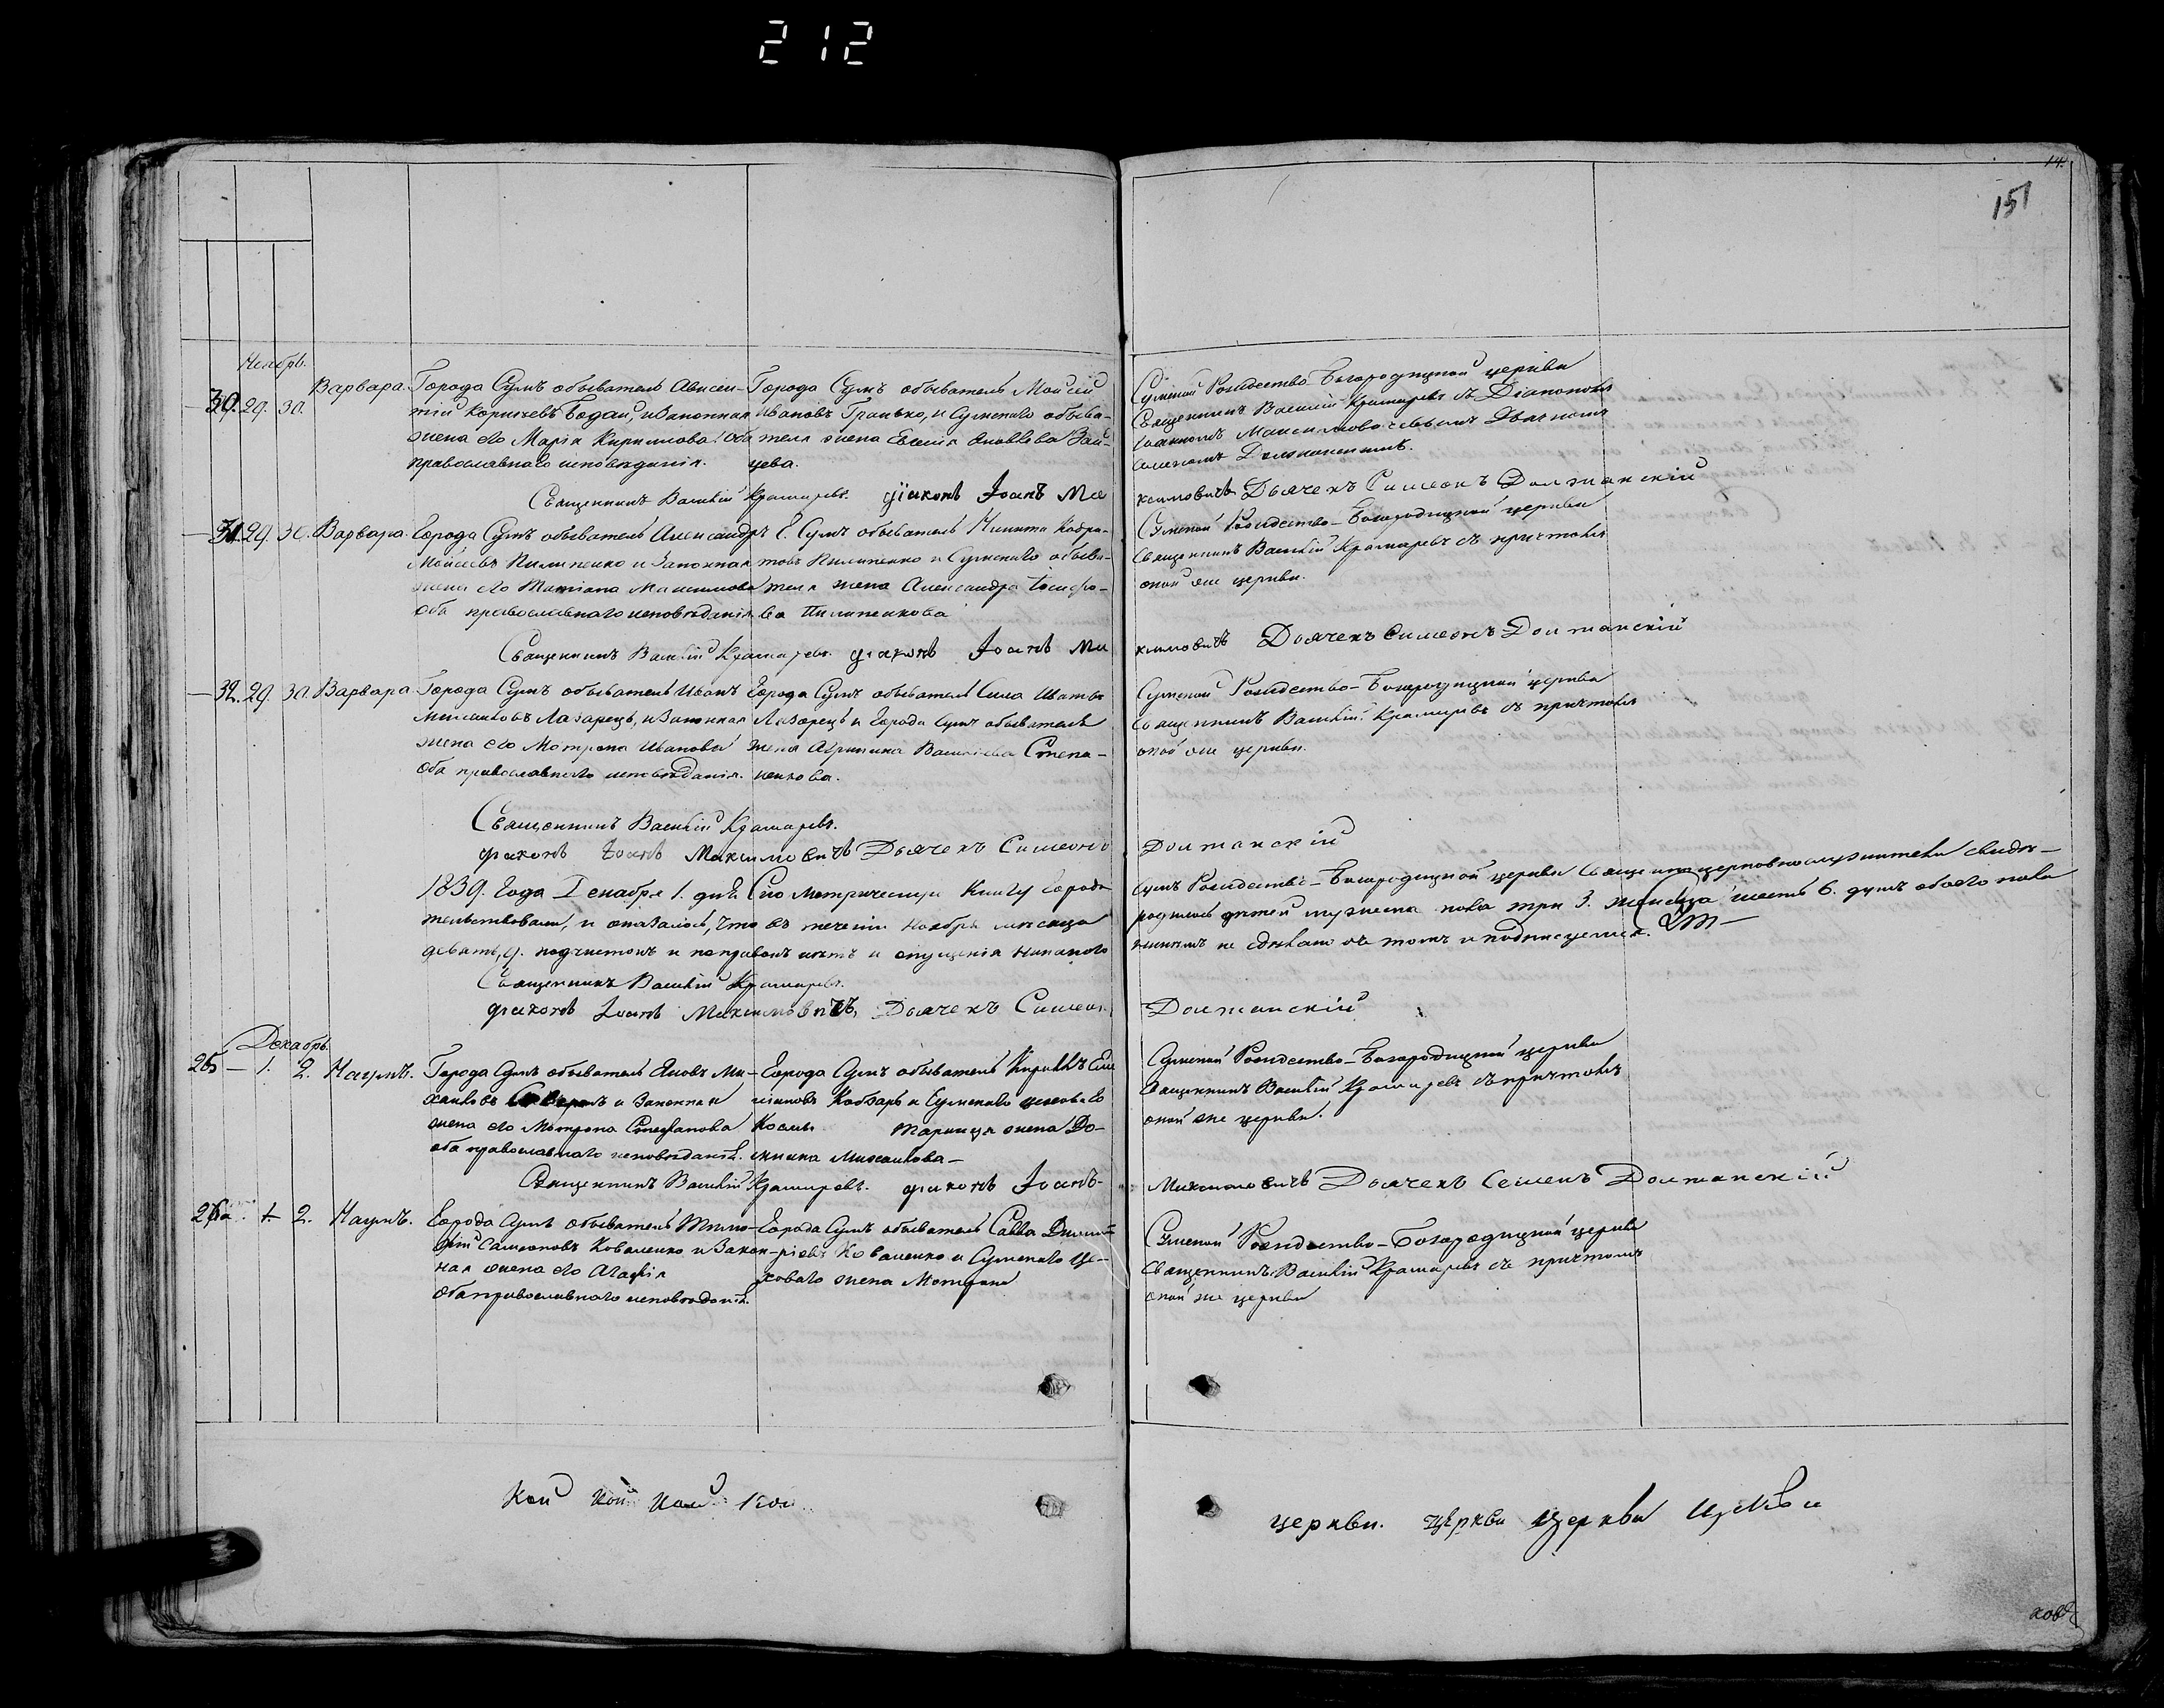 212
14.
151
Ноябрь.
30. 29. 30. Варвара. Города Сумъ обыватель Авксен-
тій Корнѣевъ Бодай, и законная
жена его Марія Кириллова оба
православнаго исповѣданія.
Города Сумъ обыватель Моисей
Ивановъ Гранько, и Сумскаго обыва-
теля жена Евгенія Яковлева Зай-
цева.
Сумской Рождество-Богородицкой церкви
Священникъ Василій Крамаревъ съ Діакономъ
Іоанномъ Максимовичевымъ Дьячкомъ
Священникъ Василій Крамаревъ. Діаконъ Іоанъ Ма
ксимовичъ Дьячекъ Симеонъ Должанскій
31. 29. 30. Варвара. Города Сумъ обыватель Александръ
Моисеевъ Пилипенко и законная
жена его Татіана Максимова
оба православнаго исповѣданія.
Г. Сумъ обыватель Никита Кодра-
товъ Пилипенко и Сумскаго обыва-
теля жена Александра Іосифо-
ва Пилипенкова
Сумской Рождество-Богородицкой церкви
Священникъ Василій Крамаревъ съ причтомъ
оной же церкви.
Священникъ Василій Крамаревъ. Діаконъ Іоанъ Ма
ксимовичъ Дьячекъ Симеонъ Должанскій
32. 29. 30. Варвара Города Сумъ обыватель Иванъ
Михайловъ Лазарецъ, и законная
жена его Мотрона Иванова
оба православнаго исповѣданія.
Города Сумъ обыватель Сила Ивановъ
Лазарецъ и города Сумъ обывателя
жена Агрипина Василіева Степа-
ненкова.
Сумской Рождество-Богородицкой церкви
Священникъ Василій Крамаревъ съ причтомъ
оной же церкви.
Священникъ Василій Крамаревъ.
Діаконъ Іоанъ Максимовичъ Дьячекъ Симеонъ Должанскій
1839. Года Декабря 1. дня Сію метрическую книгу города Сумъ Рождество-Богородицкой церкви Священноцерковнослужители свидѣ-
тельствовали, и оказалось, что въ теченіи ноября мѣсяца родилось дѣтей мужеска пола три 3. женска шесть 6. душъ обоего пола
девять, 9. подчистокъ и поправокъ нѣтъ и опущенія никакого не сдѣлано въ томъ и подписуемся.
Священникъ Василій Крамаревъ.
Діаконъ Іоанъ Максимовичъ, Дьячекъ Симеонъ Должанскій
Декабрь.
25 — 1. 2. Наумъ. Города Сумъ обыватель Яковъ Ми-
хайловъ и законная
жена его Мотрона Стефанова
оба православнаго исповѣданія.
Города Сумъ обыватель Кириллъ
Кобзарь и Сумскаго цеховаго
Космы жена До-
мнина Михайлова —
Сумской Рождество-Богородицкой церкви
Священникъ Василій Крамаревъ съ причтомъ
оной же церкви.
Священникъ Василій Крамаревъ. Діаконъ Іоанъ
Максимовичъ Дьячекъ Семенъ Должанскій
26 1. 2. Наумъ. Города Сумъ обыватель Тимо-
фій Самсоновъ Коваленко и закон-
ная жена его Агафія
оба православнаго исповѣданія.
Города Сумъ обыватель Савва Димит-
ріевъ Коваленко и Сумскаго це-
ховаго жена Мотрона
Сумской Рождество-Богородицкой церкви
Священникъ Василій Крамаревъ съ причтомъ
оной же церкви
церкви. церкви церкви